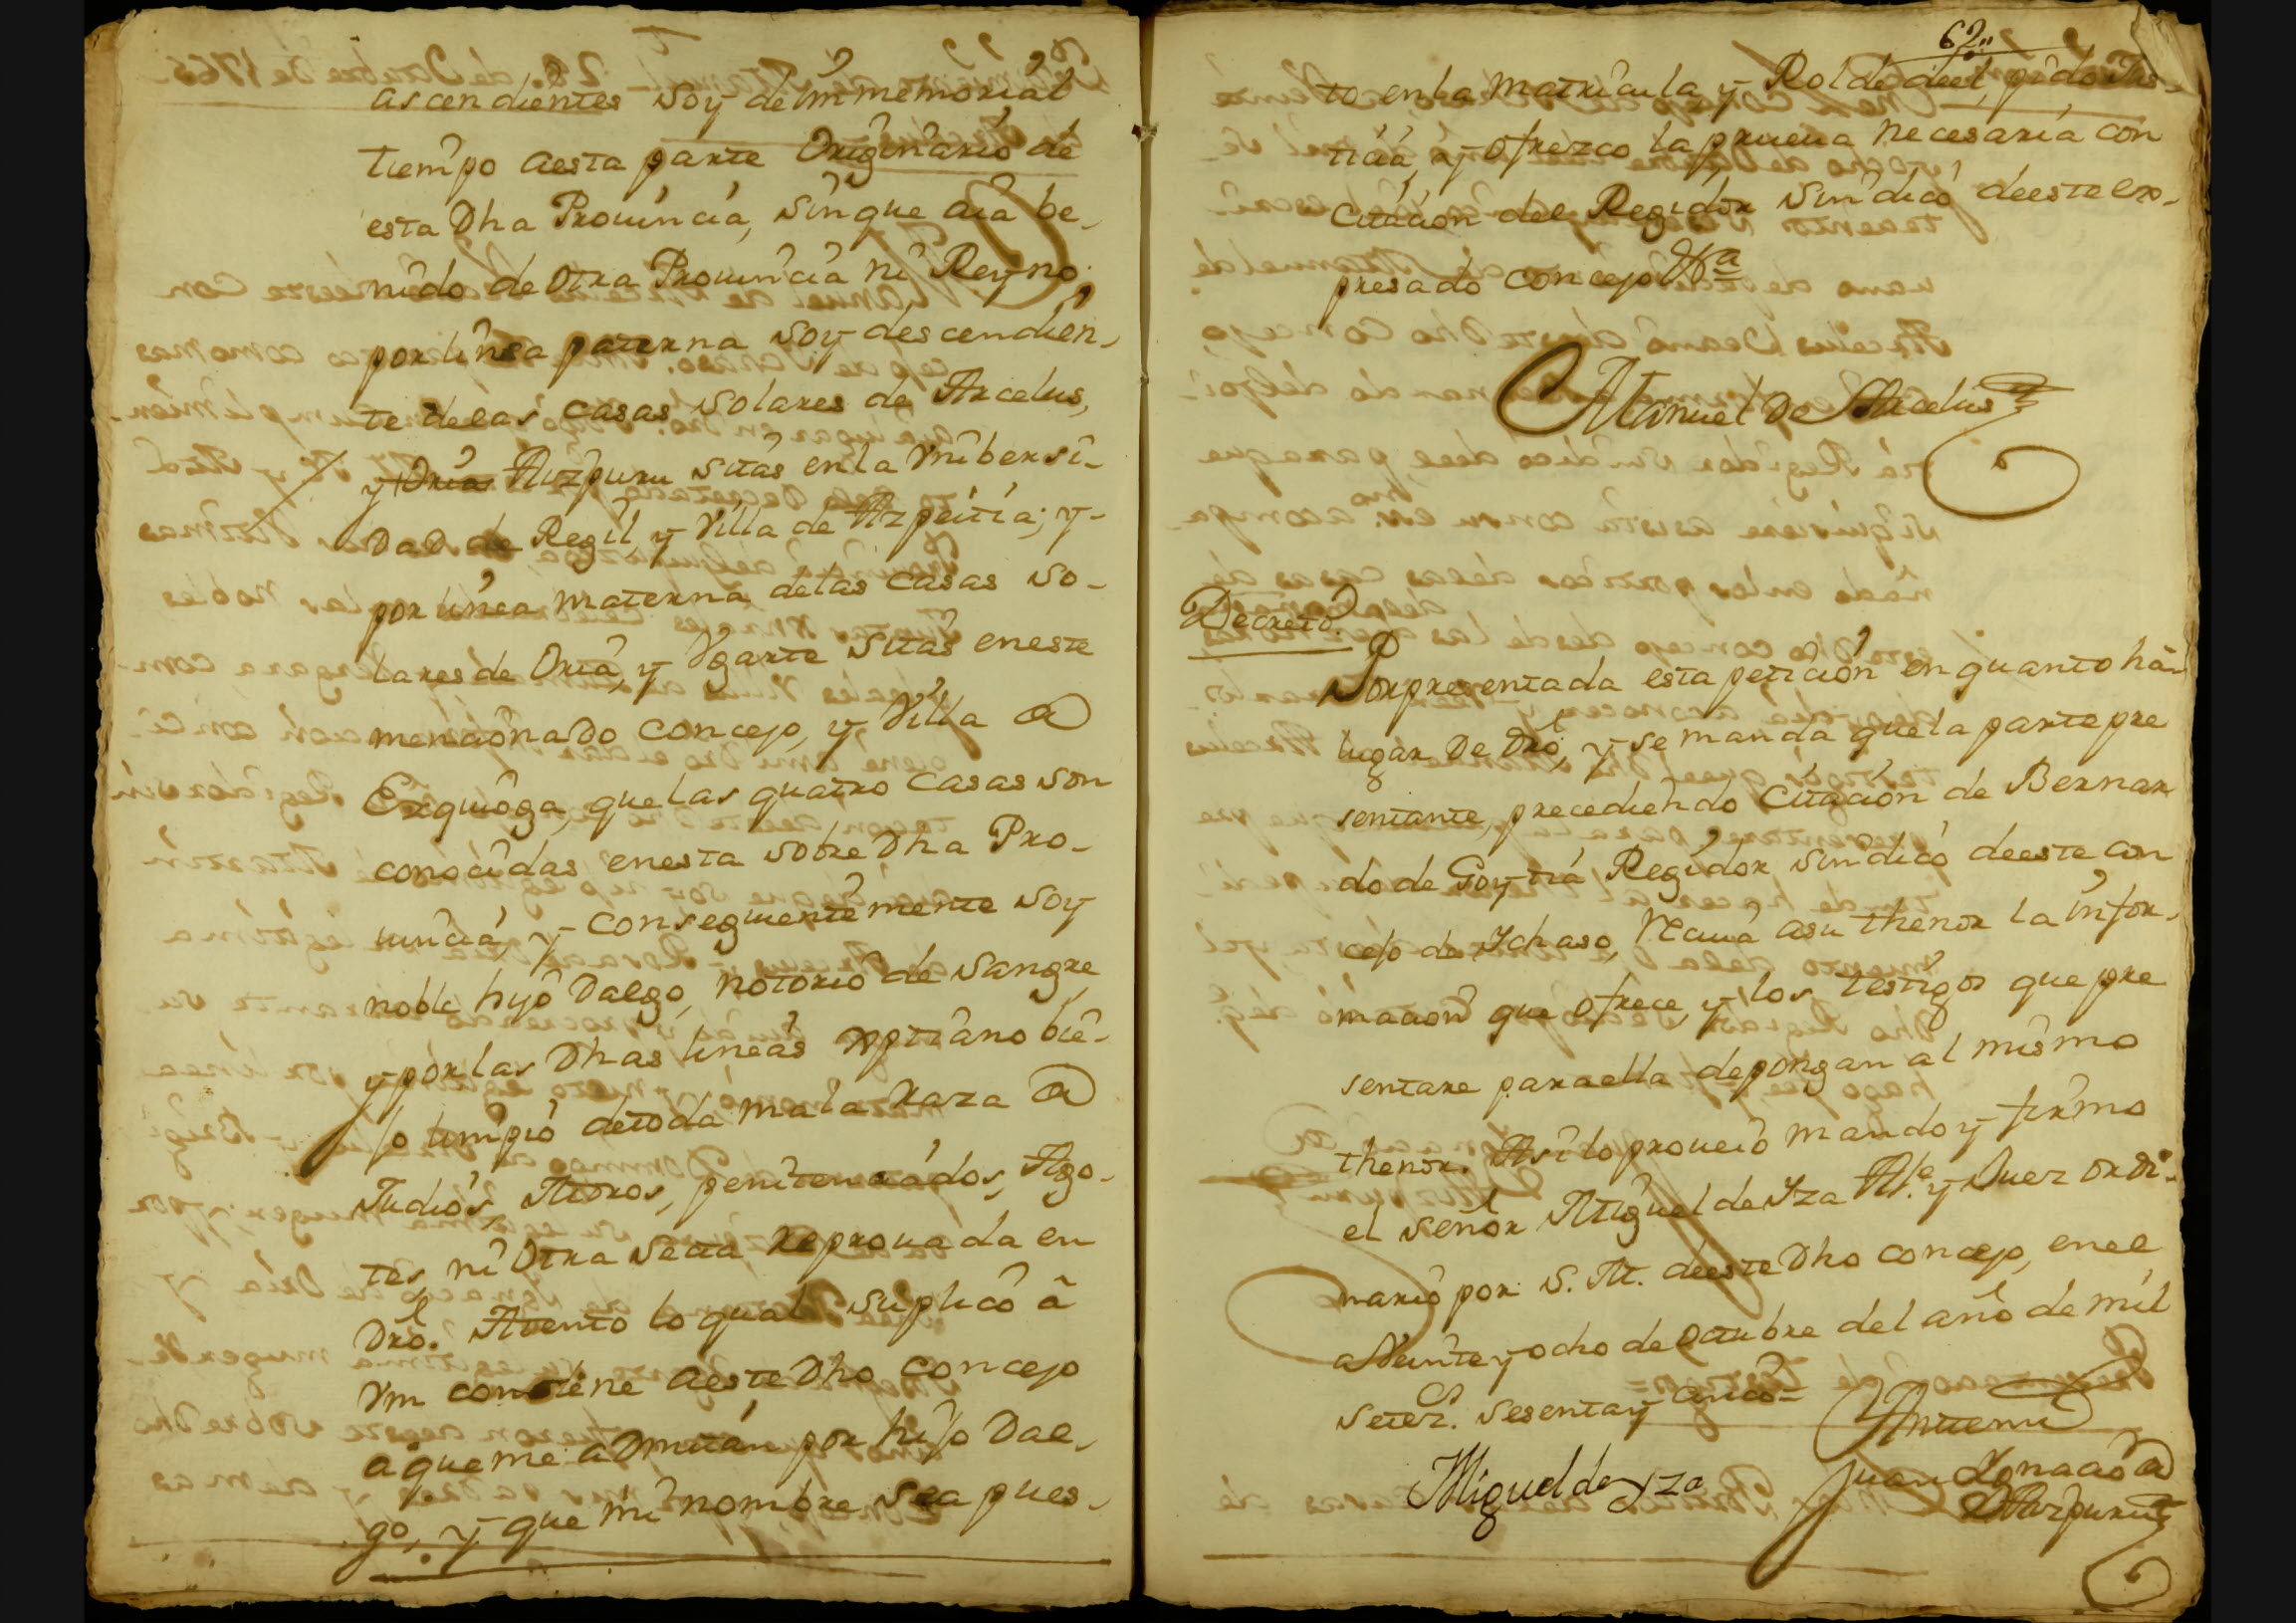 ascendientes soy de inmemorial
tiempo aesta parte Originario de
esta Dha Prouincia, sin que aia be-
nido de otra Prouincia ni Reyno
por linea paterna soy descendien-
te delas casas solares de Arcelus,
y Oria Aizpuru sitas enla Vnibersi-
Dad de Regil y Villa de Azpeitia; y-
por linea materna delas casas so-
lares de Oria, y Vgarte sitas eneste
mencionado concejo, y Villa @
Ezquioga, que las quatro casas son
conocidas enesta sobre Dha Pro-
uincia, y- conseguentemente soy
noble hijo Dalgo, notorio de sangre,
y por las Dhas lineas xptiano bie-
jo limpio detoda mala Raza @
Judios, Moros, penitenciados, Ago-
tes, ni Otra Secta Reprouada en
Dro. Atento lo qual suplico â
Vm condene aeste Dho concejo
aque me admitan por hijo Dal-
go, y que mi nombre sea pues-
62
to enla matricula y Rol de del, pido Jus-
ticia, y ofrezco la prueua necesaria con
citacion del Regidor Sindico deeste ex-
presado concejo &a
Manuel De Arcelus
Decreto.
Por presentada esta peticion en quanto ha
lugar De Dro, y se manda que la parte pre
sentante, precediendo citacion de Bernar
do de Goytia Regidor sindico deeste con
cejo de Ichaso, Reciua asu thenor la infor-
macion que ofrece, y los testigos que pre
sentare paraella depongan al mismo
thenor. Asi lo proueio mando y firmo
el señor Miguel de Yza Alc.e y Juez ordi-
nario por S. M. deeste Dho concejo, enel
a Veinte y ocho de octubre del año de mil
setez. sesenta y cinco=
Antemi
Miguel de Yza Juan Ygnacio @
Aizpuru